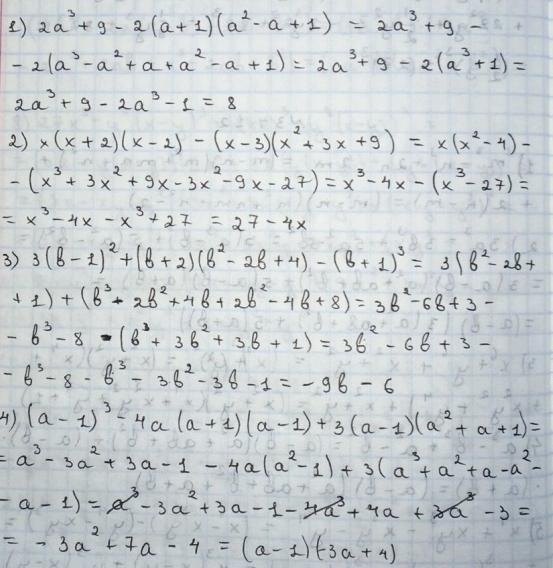 1) 2a³ + 9 - 2(a+1)(a² - a + 1) = 2a³ + 9 -
- 2(a³ - a² + a + a² - a + 1) = 2a³ + 9 - 2(a³ + 1) =
2a³ + 9 - 2a³ - 1 = 8
2) x(x+2)(x-2) - (x-3)(x² + 3x + 9) = x(x² - 4) -
- (x³ + 3x² + 9x - 3x² - 9x - 27) = x³ - 4x - (x³ - 27) =
= x³ - 4x - x³ + 27 = 27 - 4x
3) 3(в-1)² + (в+2)(в² - 2в + 4) - (в+1)³ = 3(в² - 2в +
+ 1) + (в³ - 2в² + 4в + 2в² - 4в + 8) = 3в² - 6в + 3 -
- в³ - 8 - (в³ + 3в² + 3в + 1) = 3в² - 6в + 3 -
- в³ - 8 - в³ - 3в² - 3в - 1 = - 9в - 6
4) (a-1)³ - 4a(a+1)(a-1) + 3(a-1)(a² + a + 1) =
= a³ - 3a² + 3a - 1 - 4a(a² - 1) + 3(a³ + a² + a - a² -
- a - 1) = a³ - 3a² + 3a - 1 - 4a³ + 4a + 3a³ - 3 =
= - 3a² + 7a - 4 = (a-1)(-3a+4)